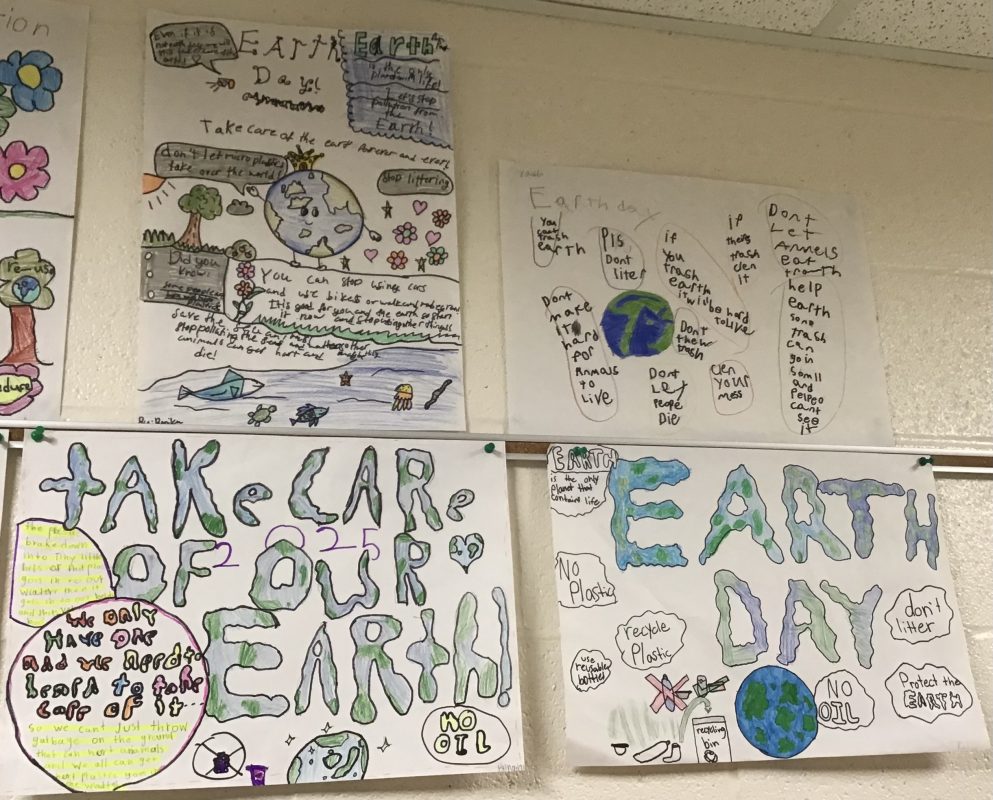 tion
re-use
Even if it is
EARTH
Day!
Earth
is the only
planet with life!
Let's stop
pollution from
the
Earth!
Take care of the earf forever and ever!
don't let micro plastics
take over the world!
Stop littering
Did you
know:
You can stop using cars
and use bikes or walk and
It's good for you and the earth so start
it now and stop
save the
stop polluting the
animals can get hart and
die!
Earth day
You
cant
trash
earth
Pls
Dont
liter
if
you
trash
earth
it will
be hard
to live
if
thers
trash
clen
it
Dont
Let
Annels
eat
trath
help
earth
some
trash
can
go in
small
and
pelpeo
cant
see
it
Dont
make
it
hard
for
Animals
to
Live
Dont
thew
trash
Dont
Let
People
Die
clen
your
mess
tAKe CARe
OF OUR
2025
EARth!
the
brake down
into tiny little
bits of
gos in to out
We only
Have one
and we need to
learn to take
care of it
so we cant just throw
garbage on the ground
that can hert animals
and we all can get
NO
OIL
EARTH
is the only
Planet that
contains life
EARTH
DAY
NO
Plastic
recycle
Plastic
use
reusable
bottles
don't
litter
Protect the
EARTH
NO
OIL
recycling
bin